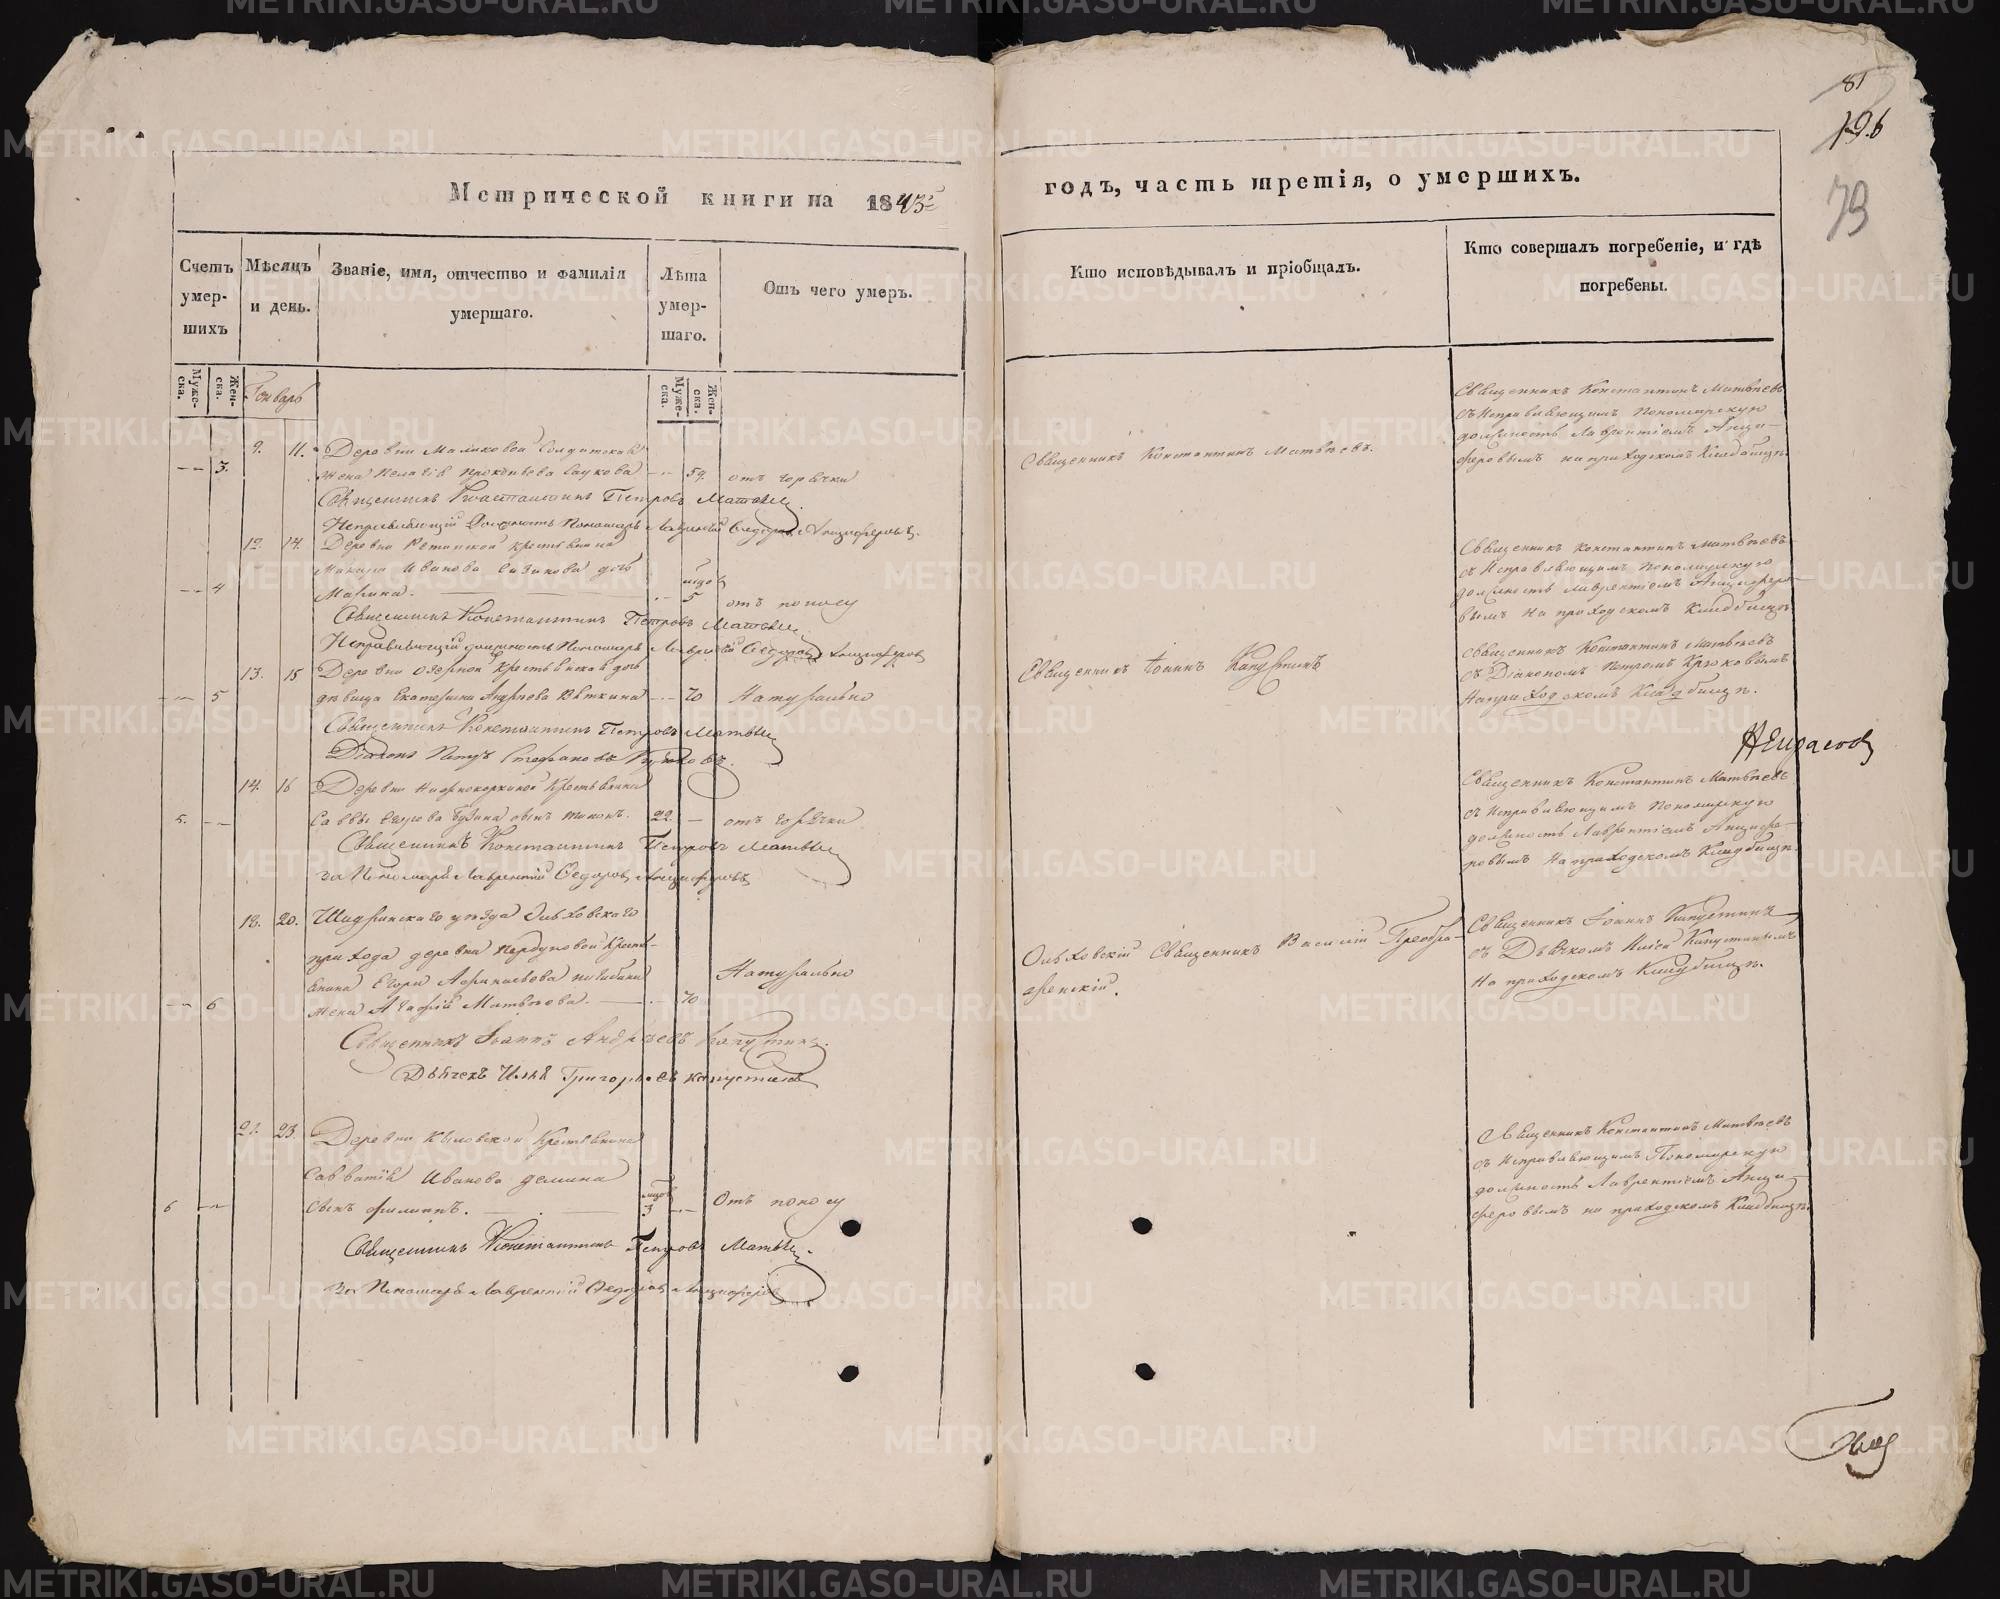 81
196
79
Метрической книги на 1843й
годъ, часть третія, о умершихъ.
Счетъ умер-шихъ
Мѣсяцъ и день.
Званіе, имя, отчество и фамилія умершаго.
Лѣта умер-шаго.
Отъ чего умеръ.
Кто исповѣдывалъ и пріобщалъ.
Кто совершалъ погребеніе, и гдѣ погребены.
Муже-ска.
Жен-ска.
Генварь
Муже-ска.
Жен-ска.
9. 11. Деревни Маликовой Солдатская
3. жена Пелагія Прокопьева 59. отъ горячки
Священникъ Константинъ Матвѣевъ.
Священникъ Константинъ Матвѣевъ
съ Исправляющимъ Пономарскую
должность Лаврентіемъ Анци-
феровымъ на приходскомъ Кладбищѣ.
Священникъ Константинъ Петровъ Матвѣевъ.
Исправляющій Должность Пономаря Лаврентій Федоровъ Анциферовъ.
12. 14. Деревни крестьянина
4 Иванова дочь
Марина. 5 отъ поносу
Священникъ Константинъ Матвѣевъ
съ Исправляющимъ Пономарскую
должность Лаврентіемъ Анцифе-
ровымъ на приходскомъ Кладбищѣ
Священникъ Константинъ Петровъ Матвѣевъ
Исправляющій должность Пономаря Лаврентій Федоровъ Анциферовъ
13. 15 Деревни Озерной Крестьянская дочь
5 дѣвица Екатерина Вяткина 70 Натурально
Священникъ Іоаннъ Капустинъ
Священникъ Константинъ Матвѣевъ
съ Діакономъ Петромъ Крюковымъ
На приходскомъ Кладбищѣ.
Священникъ Константинъ Петровъ Матвѣевъ
Діаконъ Петръ Стефановъ Крюковъ.
14. 16 Деревни Крестьянина
5. Саввы сынъ 22. отъ горячки
Священникъ Константинъ Матвѣевъ
съ Исправляющимъ Пономарскую
должность Лаврентіемъ Анцифе-
ровымъ На приходскомъ Кладбищѣ.
Священникъ Константинъ Петровъ Матвѣевъ
за Пономаря Лаврентій Федоровъ Анциферовъ
18. 20. Шадринскаго уѣзда Ольховскаго
прихода деревни Крестья-
янина Егора
6 жена Агафія Матвѣева. 70 Натурально
Ольховскій Священникъ Василій Преобра-
женскій.
Священникъ Іоаннъ Капустинъ
съ Дьячкомъ Ильей Капустинымъ
На приходскомъ Кладбищѣ.
Священникъ Іоаннъ Андреевъ Капустинъ.
Дьячекъ Илья Григорьевъ Капустинъ
21. 23. Деревни Кыловской Крестьянина
Савватія Иванова Демина
6 сынъ Филиппъ. мцов 3 Отъ поносу
Священникъ Константинъ Матвѣевъ
съ Исправляющимъ Пономарскую
должность Лаврентіемъ Анци-
феровымъ на приходскомъ Кладбищѣ.
Священникъ Константинъ Петровъ Матвѣевъ.
За Пономаря Лаврентій Федоровъ Анциферовъ
METRIKI.GASO-URAL.RU